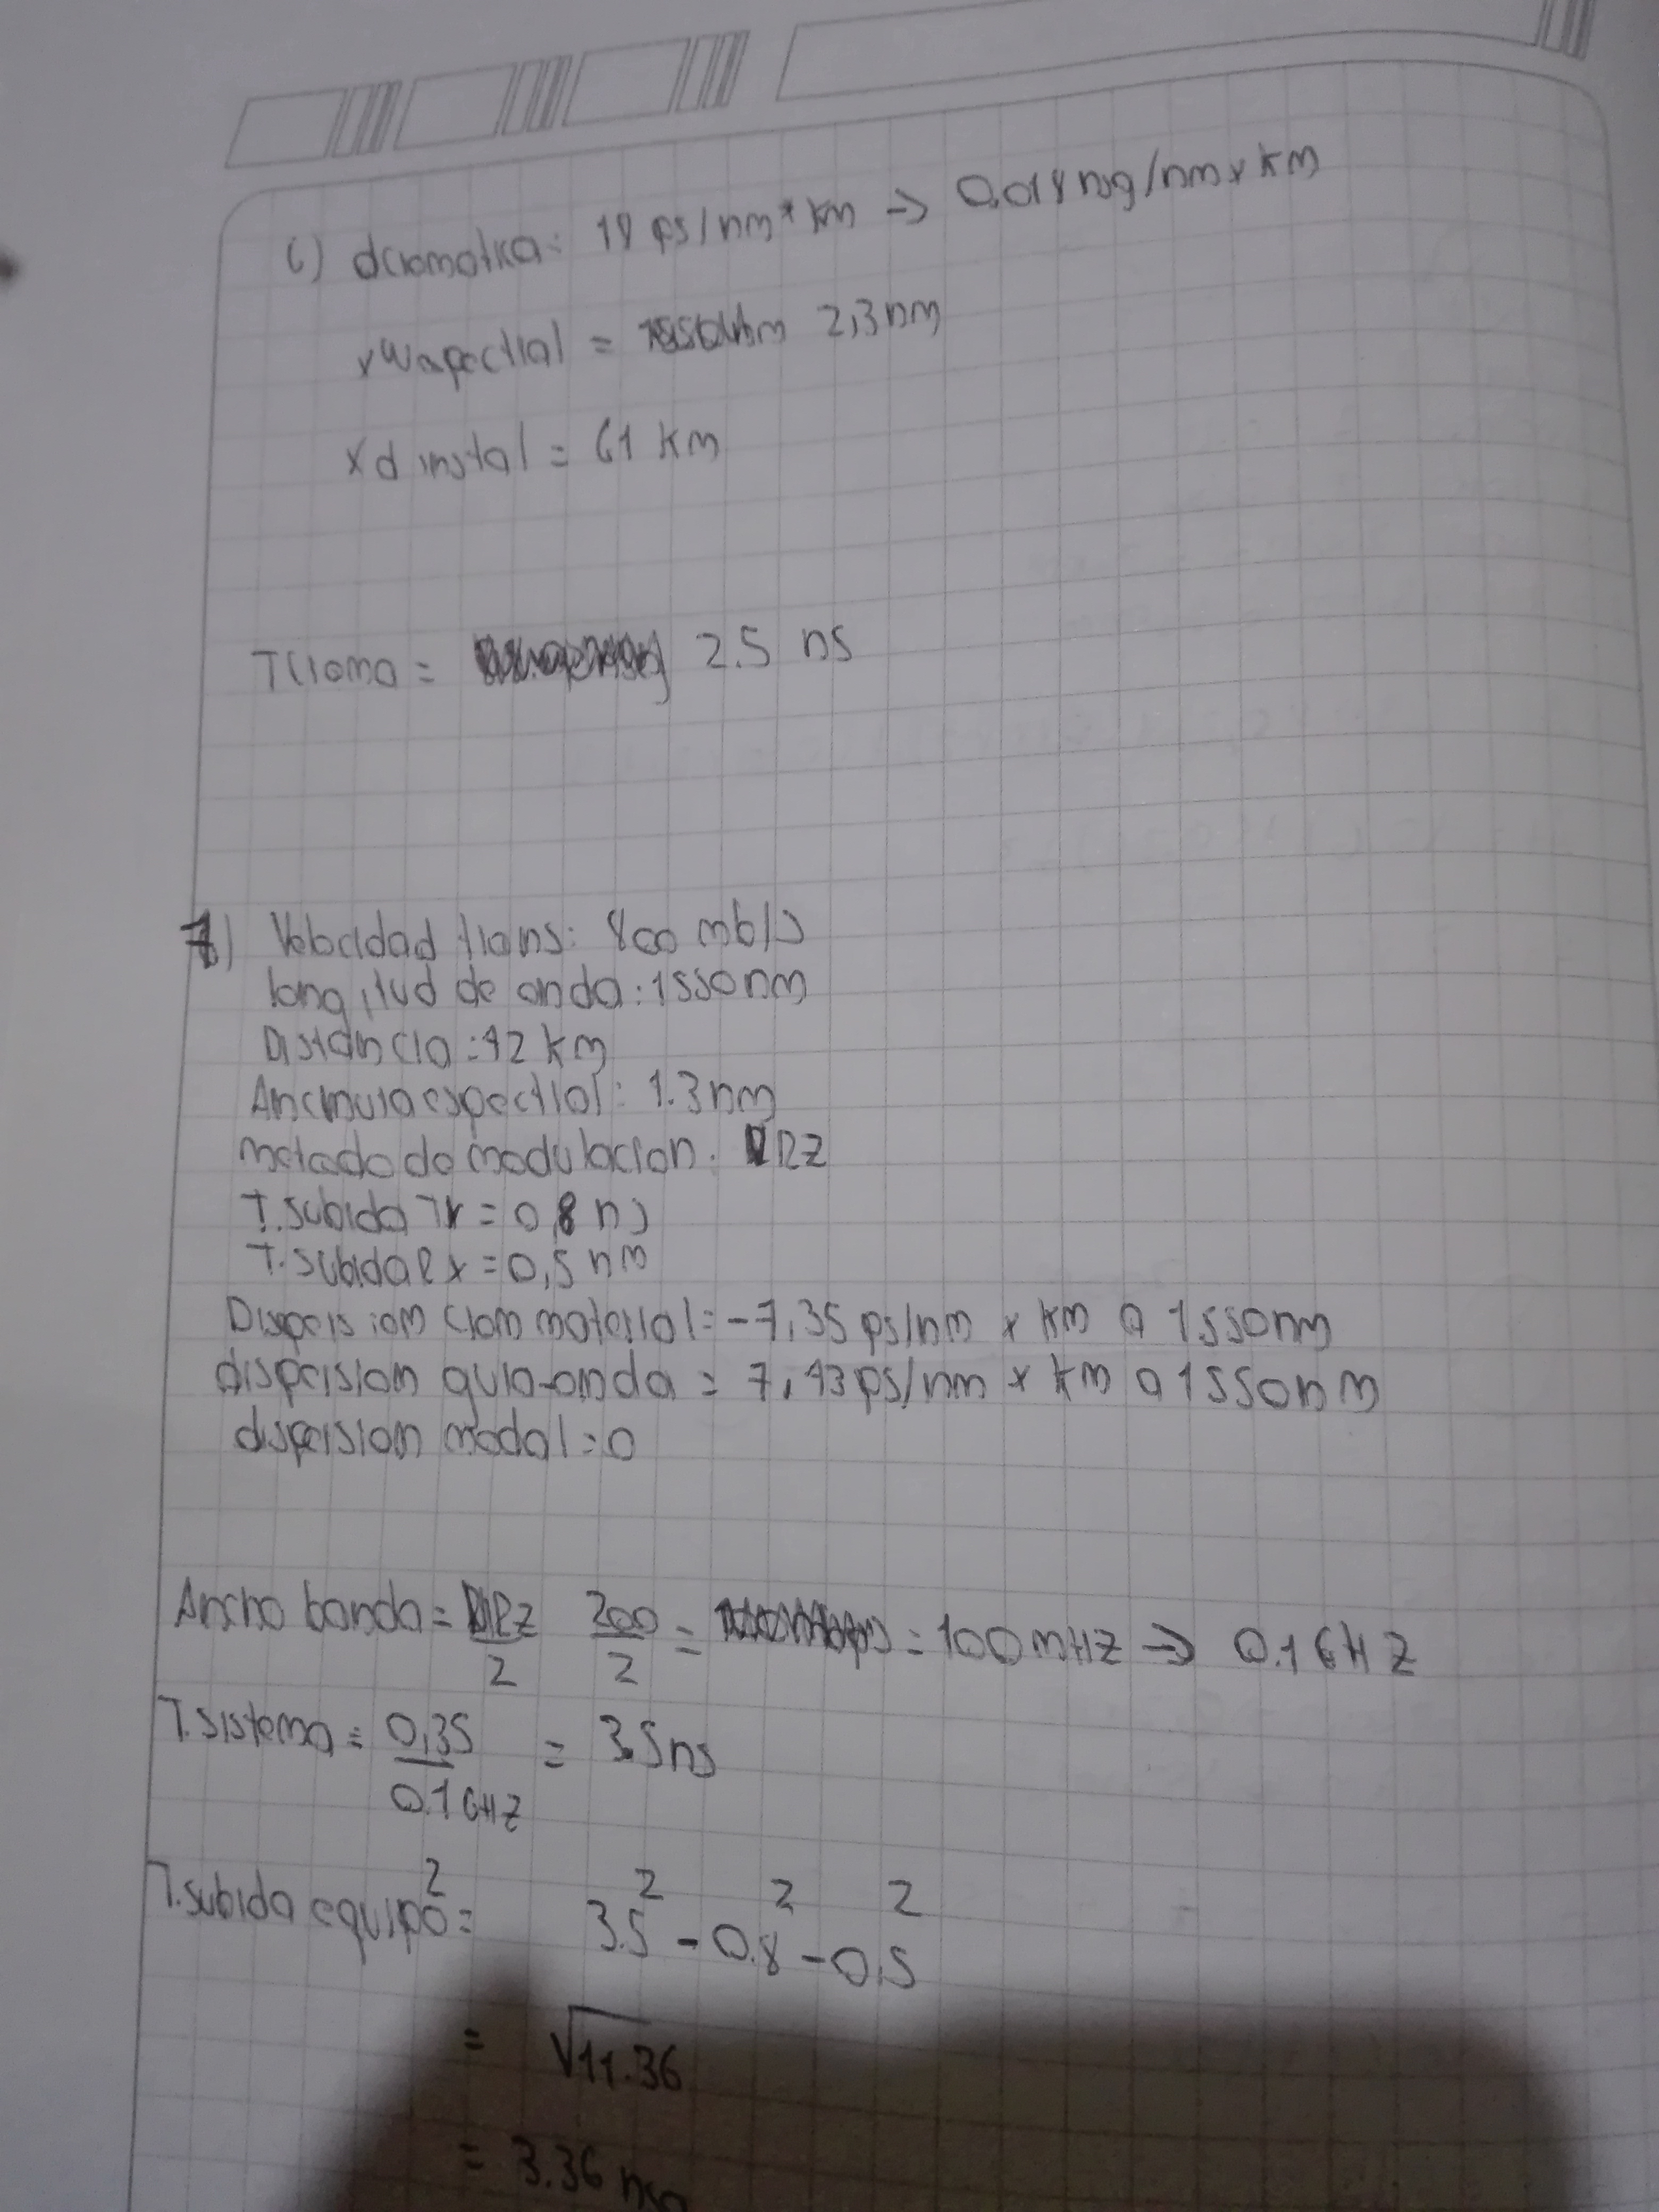 c) dcromatica: 18 ps/nm*km → 0.018 nsg/nm x km
x w espectral = 2,3 nm
x d instal = 61 km
T croma = 2.5 ns
7) Velocidad trans: 800 mb/s
longitud de onda: 1550nm
Distancia: 42 km
Anchura espectral: 1.3nm
metodo de modulacion: RZ
T. subida Tx = 0,8 ns
T. subida Rx = 0,5 nm
Dispersiom crom material = -7,35 ps/nm x km a 1550nm
dispersion guia-onda = 7,43 ps/nm x km a 1550nm
dispersion modal = 0
Ancho banda = RZ/2 200/2 = = 100 mHz → 0.1 GHz
T. sistema = 0,35/0.1 GHz = 3.5 ns
T. subida equipo² = 3.5² - 0.8² - 0.5²
= √11.36
= 3.36